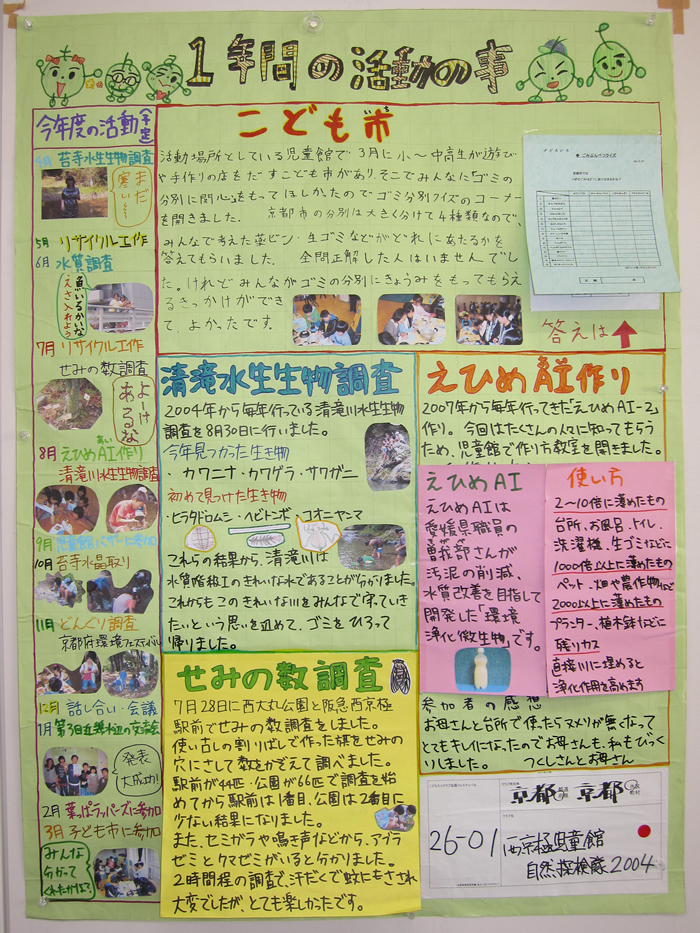 1年間の活動の事
今年度の活動
予定
4月 苔寺水生生物調査
まだ
寒い…
5月 リサイクル工作
6月 水質調査
魚いるかいな
えさ入れよう
7月 リサイクル工作
せみの数調査
よーけ
あるな
8月 えひめAI作り
清滝川水生生物調査
9月 児童館バザーに参加
10月 苔寺水晶取り
11月 どんぐり調査
京都府環境フェスティバル
12月 話し合い・会議
1月 第3回近畿水辺の交流会
発表
大成功!
2月
3月 子ども市に参加
みんな
分かって
くれたかな?
こども市
活動場所としている児童館で3月に小〜中高生が遊び
や手作りの店をだすこども市があり、そこでみんなに「ゴミの
分別に関心」をもってほしかったのでゴミ分別クイズのコーナー
を開きました。 京都市の分別は大きく分けて4種類なので、
みんなで考えた空ビン、生ゴミなどがどれにあたるかを
答えてもらいました。 全問正解した人はいませんでし
た。けれどみんながゴミの分別にきょうみをもってもらえ
るきっかけができ
て、よかったです。
答えは↑
清滝水生生物調査
2004年から毎年行っている清滝川水生生物
調査を8月30日に行いました。
今年見つかった生き物
・カワニナ・カワゲラ・サワガニ
初めて見つけた生き物
・ヒラタドロムシ・ヘビトンボ・コオニヤンマ
これらの結果から、清滝川は
水質階級Iのきれいな水であることが分かりました。
これからもこのきれいな川をみんなで守っていき
たいという思いを込めて、ゴミをひろって
帰りました。
えひめAI作り
2007年から毎年行ってきた「えひめAI-2」
作り。今回はたくさんの人々に知ってもらう
ため、児童館で作り方教室を開きました。
えひめAI
えひめAIは
愛媛県職員の
曽我部さんが
汚泥の削減、
水質改善を目指して
開発した「環境
浄化微生物」です。
使い方
2〜10倍に薄めたもの
台所、お風呂、トイレ、
洗濯機、生ゴミなどに
1000倍以上に薄めたもの
ペット、畑や農作物などに
2000以上に薄めたもの
プランター、植木鉢などに
残りカス
直接川に埋めると
浄化作用を高めます
参加者の感想
お母さんと台所で使ったらヌメリが無くなって
とてもキレイになったのでお母さんも、私もびっく
りしました。 つくしさんとお母さん
せみの数調査
7月28日に西大丸公園と阪急西京極
駅前でせみの数調査をしました。
使い古しの割りばしで作った旗をせみの
穴にさして数をかぞえて調べました。
駅前が44匹・公園が66匹で調査を始
めてから駅前は1番目、公園は2番目に
少ない結果になりました。
また、セミガラや鳴き声などから、アブラ
ゼミとクマゼミがいると分かりました。
2時間程の調査で、汗だくで蚊にもさされ
大変でしたが、とても楽しかったです。
京都 京都
26-01
西京極児童館
自然探検隊2004